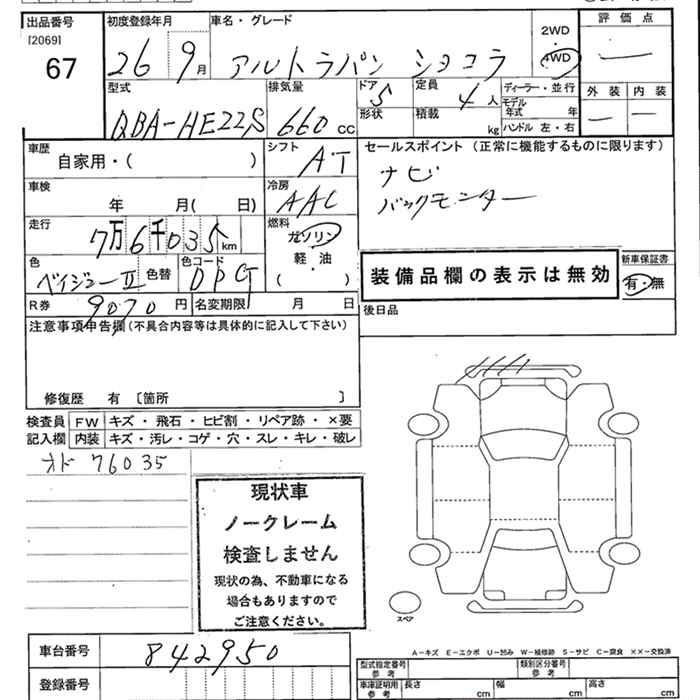 出品番号 初度登録年月 車名・グレード 2WD 評価点
[2069] 67 26 9月 アルトラパン ショコラ ・ 4WD
型式 排気量 ドア 5 定員 4人 ディーラー・並行 外装 内装
QBA-HE22S 660cc 形状 積載 kg モデル年式 年 ハンドル 左・右
車歴 シフト セールスポイント (正常に機能するものに限ります)
自家用・( ) AT ナビ
車検 冷房 バックモニター
年 月( 日) AAC
走行 燃料
7万6千035km ガソリン
軽・油
色 色替 色コード ・
ベイジュ-Ⅱ ( ) 装備品欄の表示は無効 新車保証書
有・無
R券 9070円 名変期限 月 日 後日品
注意事項申告欄(不具合内容等は具体的に記入して下さい)
修復歴 有 〔箇所 〕
検査員 FW キズ・飛石・ヒビ割・リペア跡・×要
記入欄 内装 キズ・汚レ・コゲ・穴・スレ・キレ・破レ
オド 76035
現状車
ノークレーム
検査しません
現状の為、不動車になる
場合もありますので
ご注意ください。
スペア
A-キズ E-エクボ U-凹み W-補修跡 S-サビ C-腐食 ××-交換済
車台番号 842950
型式指定番号 参考 類別区分番号 参考
登録番号 車庫証明用 参考 長さ cm 幅 cm 高さ cm